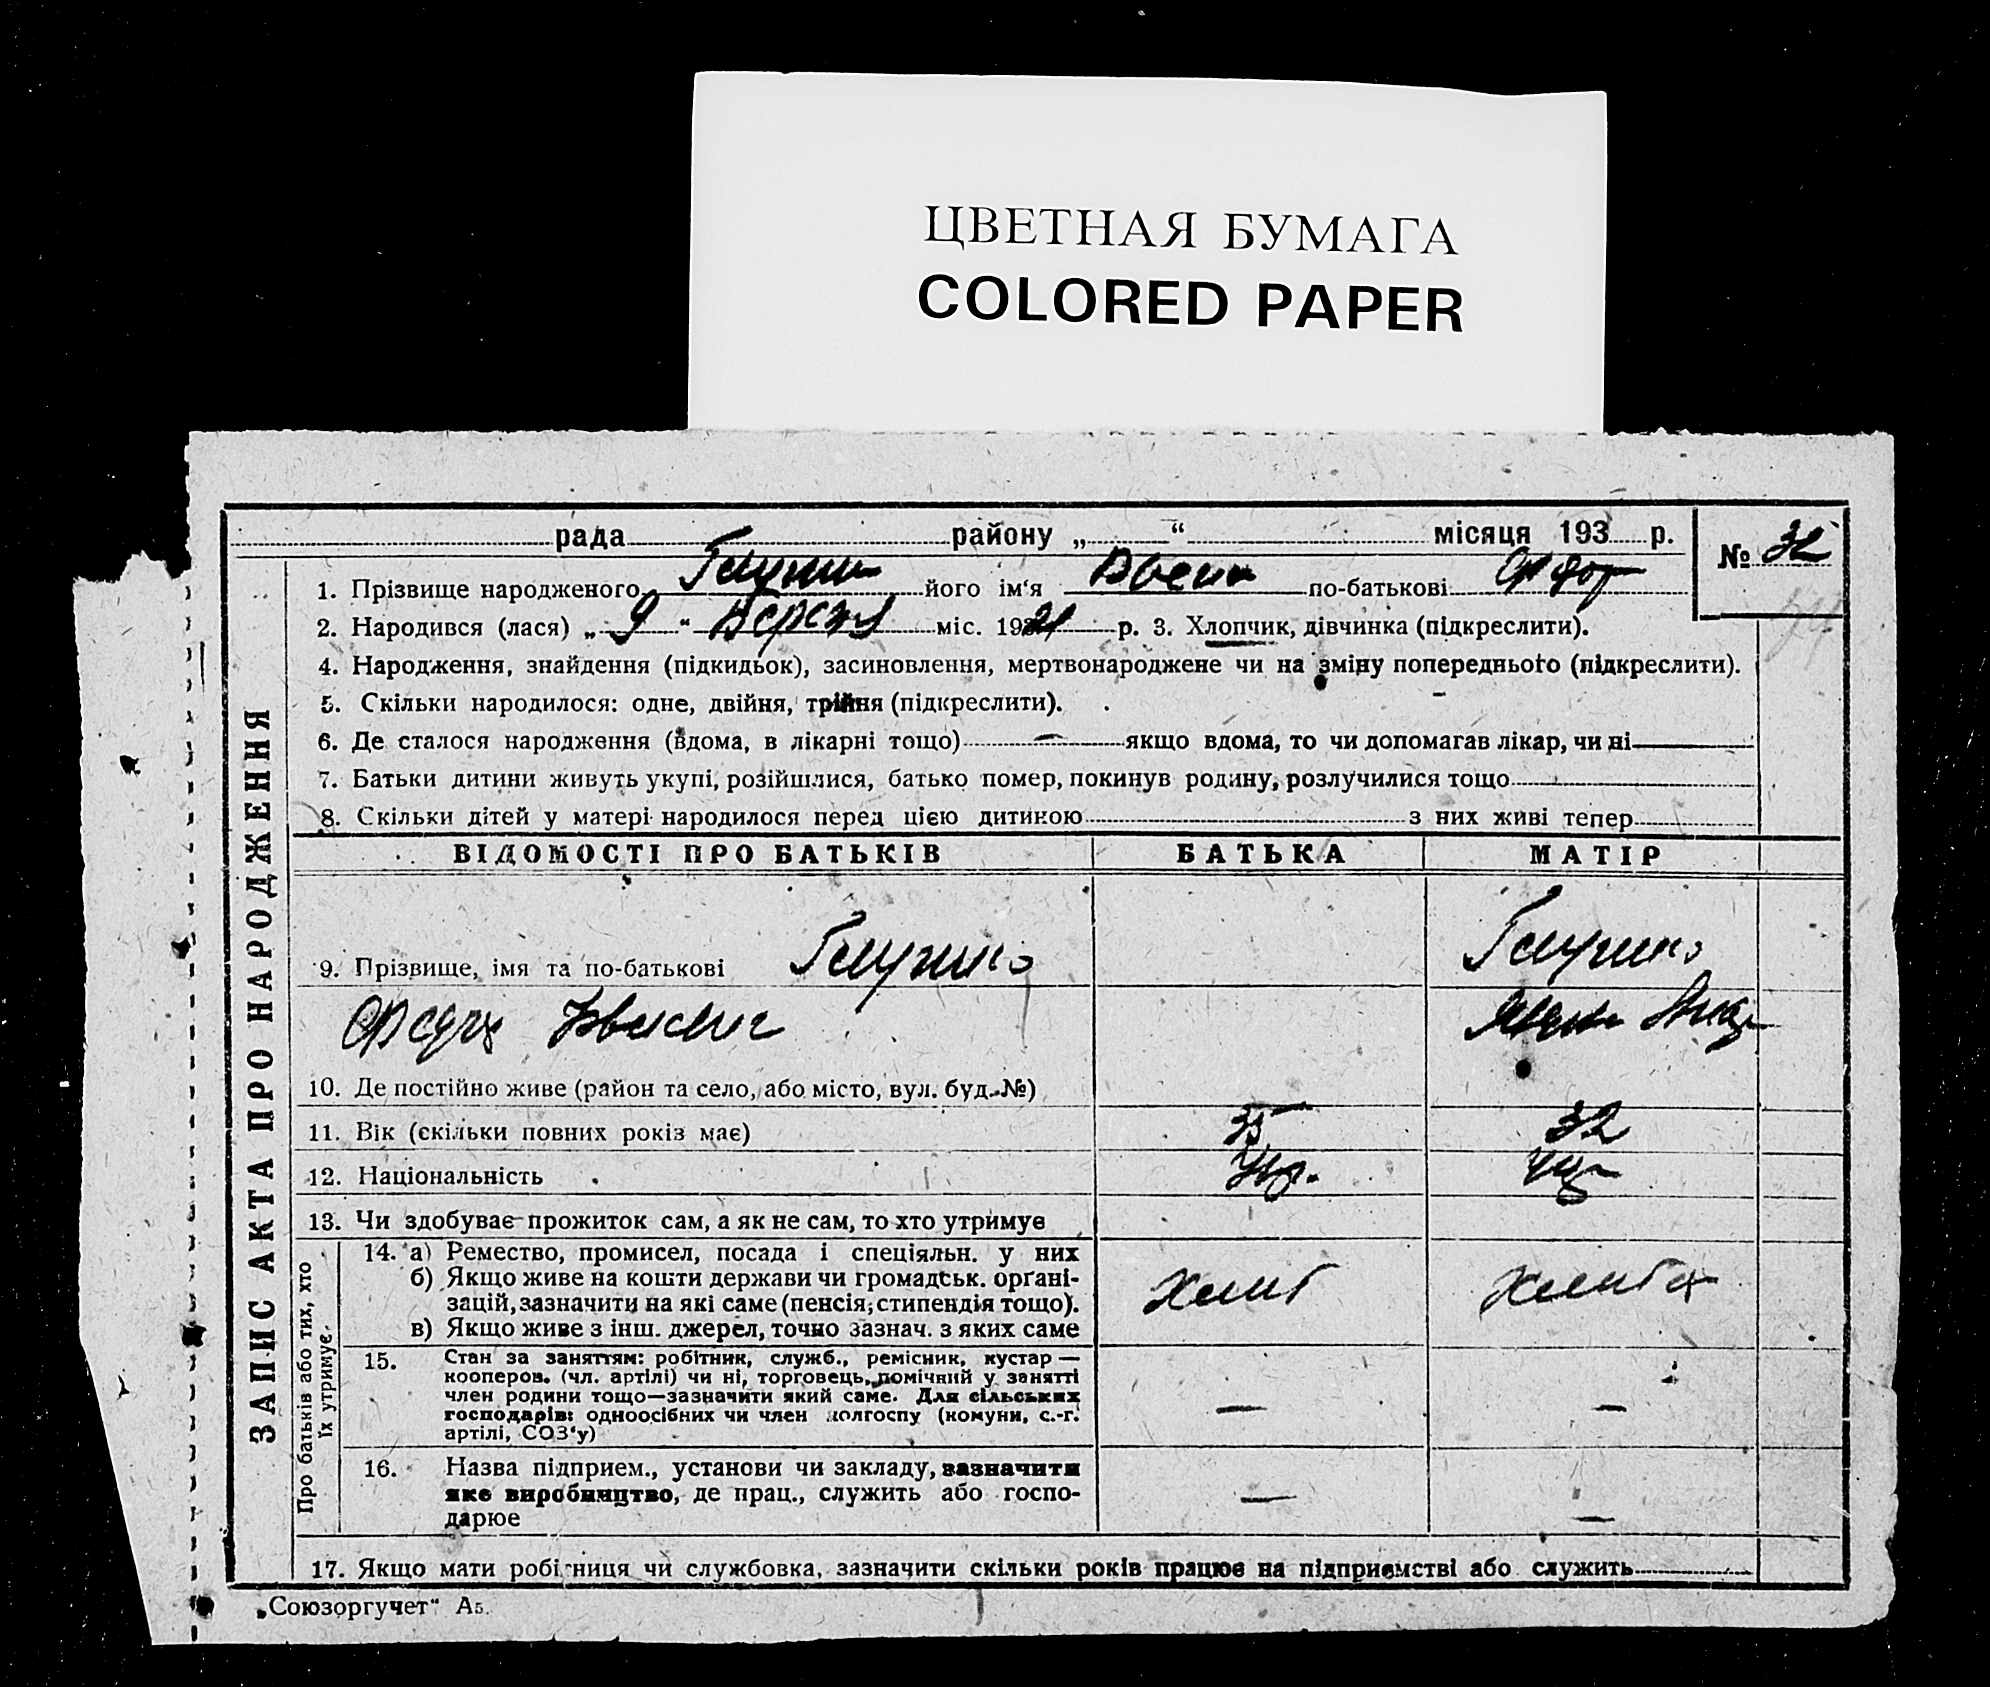 ЦВЕТНАЯ БУМАГА
COLORED PAPER
рада района „ “ місяця 193 р.
№ 32
1. Прізвище народженого його ім‘я по-батькові
2. Народився (лася) „ 9 “ міс. 19 р. 3. Хлопчик, дівчинка (підкреслити).
4. Народження, знайдення (підкидьок), засиновлення, мертвонароджене чи на зміну попереднього (підкреслити).
5. Скільки народилося: одне, двійня, трійня (підкреслити).
6. Де сталося народження (вдома, в лікарні тощо) — якщо вдома, то чи допомагав лікар, чи ні
7. Батьки дитини живуть укупі, розійшлися, батько помер, покинув родину, розлучилися тощо
8. Скільки дітей у матері народилося перед цією дитиною з них живі тепер
ЗАПИС АКТА ПРО НАРОДЖЕННЯ
ВІДОМОСТІ ПРО БАТЬКІВ БАТЬКА МАТІР
9. Прізвище, імя та по-батькові
10. Де постійно живе (район та село, або місто, вул. буд. №)
11. Вік (скільки повних років має) 35 32
12. Національність Укр.
13. Чи здобуває прожиток сам, а як не сам, то хто утримує
Про батьків або тих, хто їх утримує.
14. а) Ремество, промисел, посада і спеціяльн. у них
б) Якщо живе на кошти держави чи громадськ. орґані-
зацій, зазначити на які саме (пенсія, стипендія тощо).
в) Якщо живе з інш. джерел, точно зазнач. з яких саме
15. Стан за заняттям: робітник, служб., ремісник, кустар —
кооперов. (чл. артілі) чи ні, торговець, помічний у занятті
член родини тощо—зазначити який саме. Для сільських
господарів: одноосібних чи член колгоспу (комуни, с.-г.
артілі, СОЗ‘у) — —
16. Назва підприєм., установи чи закладу, зазначити
яке виробництво, де прац., служить або госпо-
дарює — —
17. Якщо мати робітниця чи службовка, зазначити скільки років працює на підприємстві або служить
„Союзоргучет“ А5.